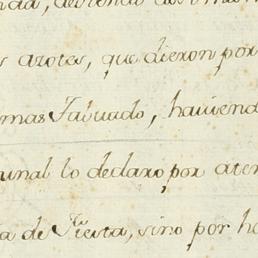 s azotes, que dieron por
mas Tabuado, haviend
unal lo declaro, por aten
a de Fiesta, sino por ha